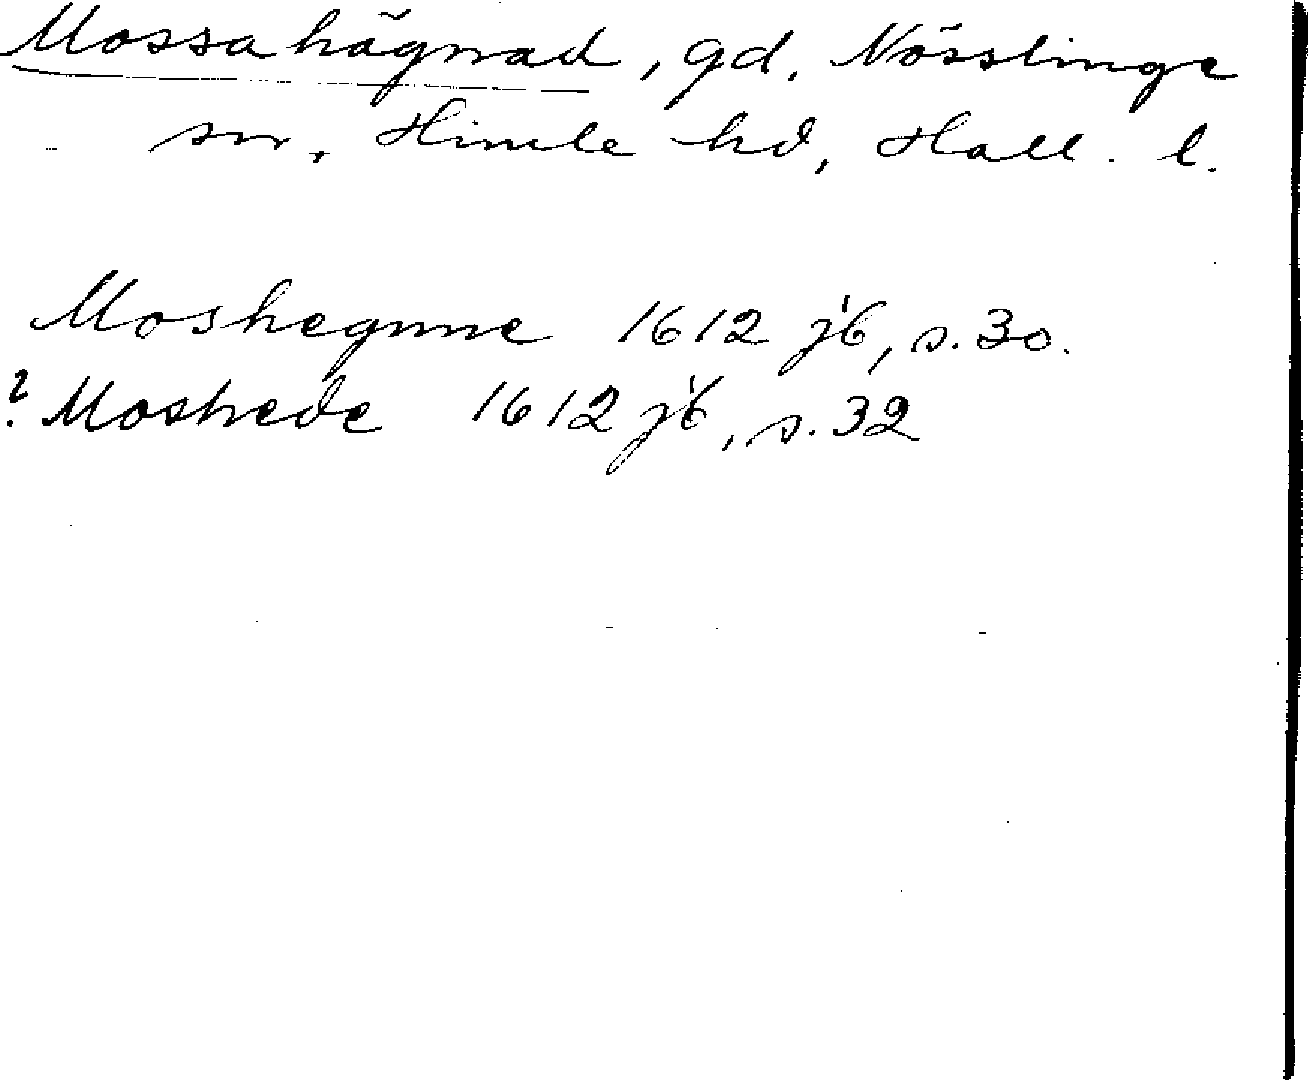 Mossahägnad, gd. Nösslinge
sn, Himle hd, Hall. l.
Moshegnne 1612 jb, s. 30.
? Moshede 1612 jb, s. 32